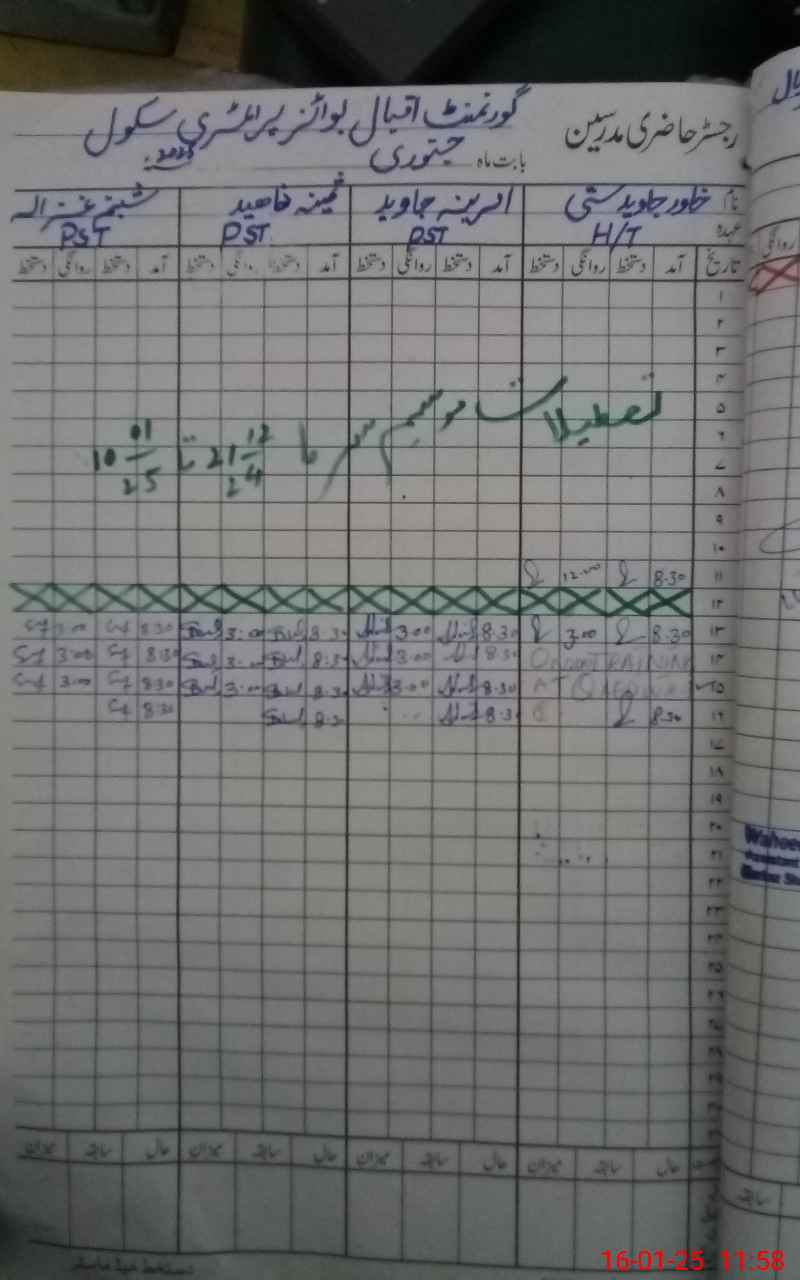 رجسٹر حاضری مدرسین گورنمنٹ اقبال بوائز پرائمری سکول
بابت ماہ جنوری 2025
نام خاور جاوید ستی جاوید ثمینہ ناھید شبنم غزالہ
عہدہ H/T PST PST PST
تاریخ آمد دستخط روانگی دستخط آمد دستخط روانگی دستخط آمد دستخط روانگی دستخط آمد دستخط روانگی دستخط
۱
۲
۳
۴
۵
تعطیلات موسم سرما 21 12 24 تا 10 01 25
۶
۷
۸
۹
۱۰
۱۱ 8.30 12.00
۱۲
۱۳ 8.30 3.00 8.30 3.00 8.30 3:00 8.30 3:00
۱۴ ON TRAINING 8.30 3.00 8.30 3:00 8.30 3:00
۱۵ AT 8.30 3:00 8.30 3:00 8.30 3:00
۱۶ 8.30 8.30 8.30 8.30
۱۷
۱۸
۱۹
۲۰
۲۱
۲۲
۲۳
حال سابقہ میزان حال سابقہ میزان حال سابقہ میزان حال سابقہ میزان
دستخط ہیڈ ماسٹر
16-01-25 11:58